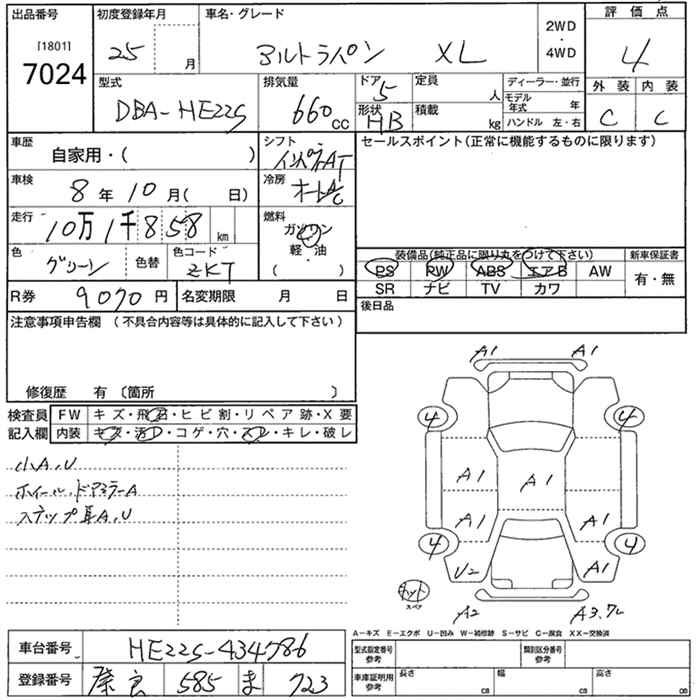 出品番号 初度登録年月 車名・グレード 2WD・4WD 評価点
[1801]
7024 25 月 アルトラパン XL 4
型式 排気量 ドア 5 定員 人 ディーラー・並行 外装 内装
DBA-HE22S 660 CC 形状 HB 積載 kg モデル年式 年 ハンドル 左・右 C C
車歴 自家用・( ) シフト インパネAT セールスポイント(正常に機能するものに限ります)
車検 8年10月( 日) 冷房 オートA/C
走行 10万1千858 km 燃料 ガソリン
軽・油
( )
色 グリーン 色替 色コード ZKT
装備品(純正品に限り丸をつけて下さい) 新車保証書
PS PW ABS エアB AW 有・無
SR ナビ TV カワ
R券 9070円 名変期限 月 日 後日品
注意事項申告欄 (不具合内容等は具体的に記入して下さい)
修復歴 有 〔箇所 〕
検査員記入欄 FW キズ・飛石・ヒビ割・リペア跡・X要
内装 キズ・汚レ・コゲ・穴・スレ・キレ・破レ
小A,U
ホイール・ドアミラーA
ステップ A,U
A1 A1
4 4
A1 A1
A1 A1
4 4
U2 A1
スペア
A2 A3.
A-キズ E-エクボ U-凹み W-補修跡 S-サビ C-腐食 XX-交換済
車台番号 HE22S-434786 型式指定番号 参考 類別区分番号 参考
登録番号 奈良 585 ま 723 車庫証明用 参考 長さ cm 幅 cm 高さ cm